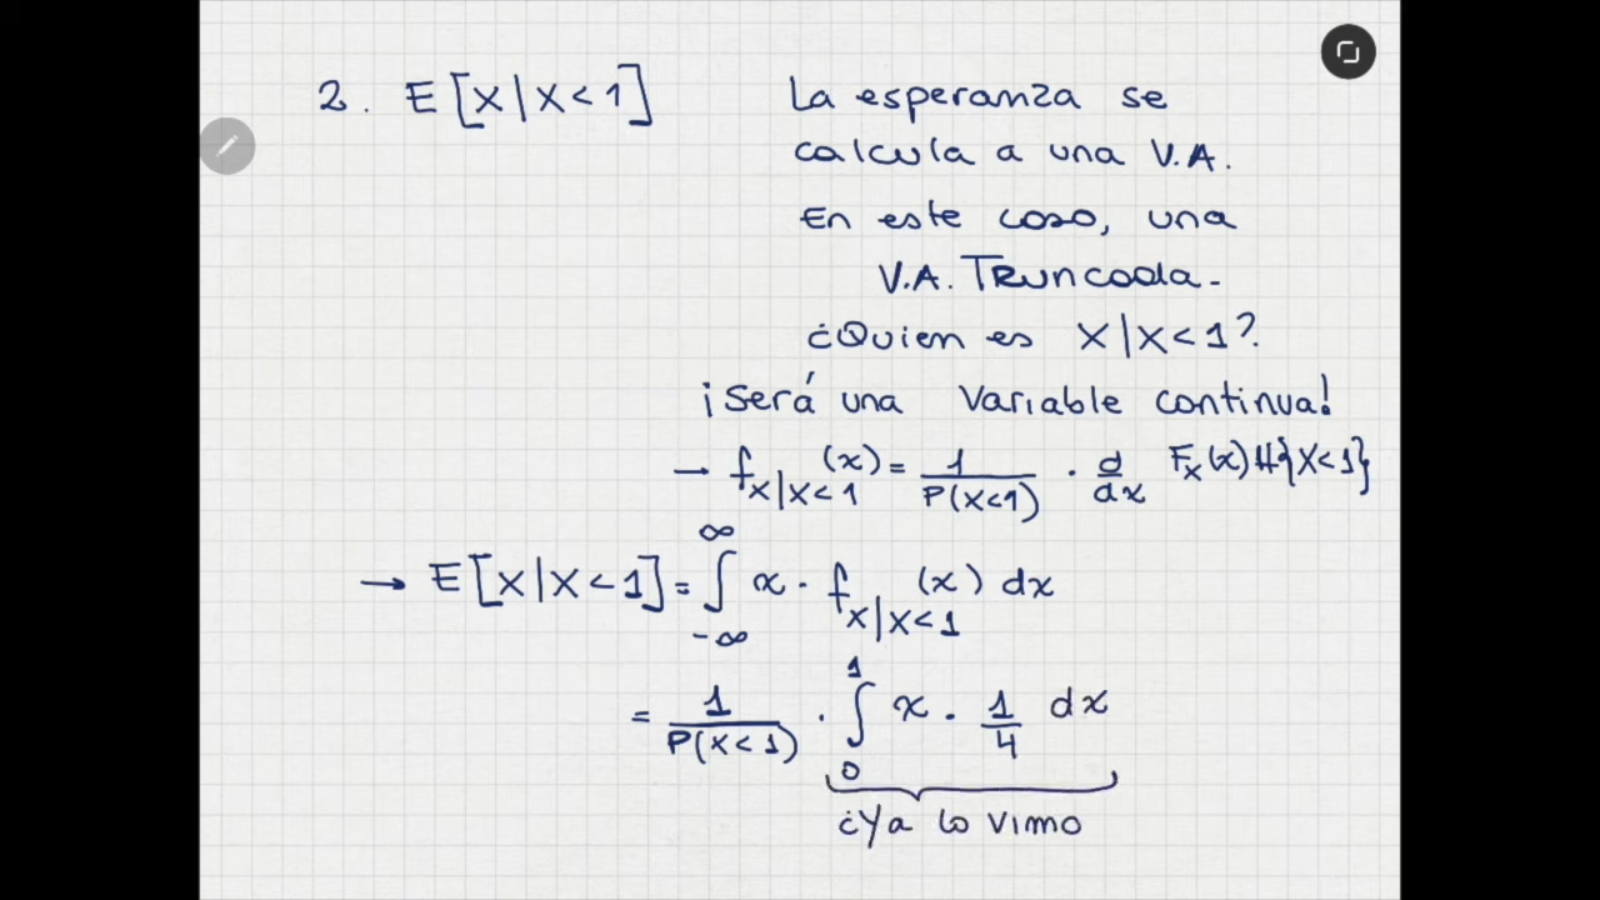 2. E[X|X<1]
La esperanza se
calcula a una V.A.
En este caso, una
V.A. Truncada.
¿Quien es X|X<1?
¡Será una Variable continua!
→ f_{X|X<1}(x) = 1/P(X<1) · d/dx F_X(x) 𝟙{X<1}
→ E[X|X<1] = ∫_{-∞}^{∞} x · f_{X|X<1}(x) dx
= 1/P(X<1) · ∫_0^1 x · 1/4 dx
¿Ya lo vimo